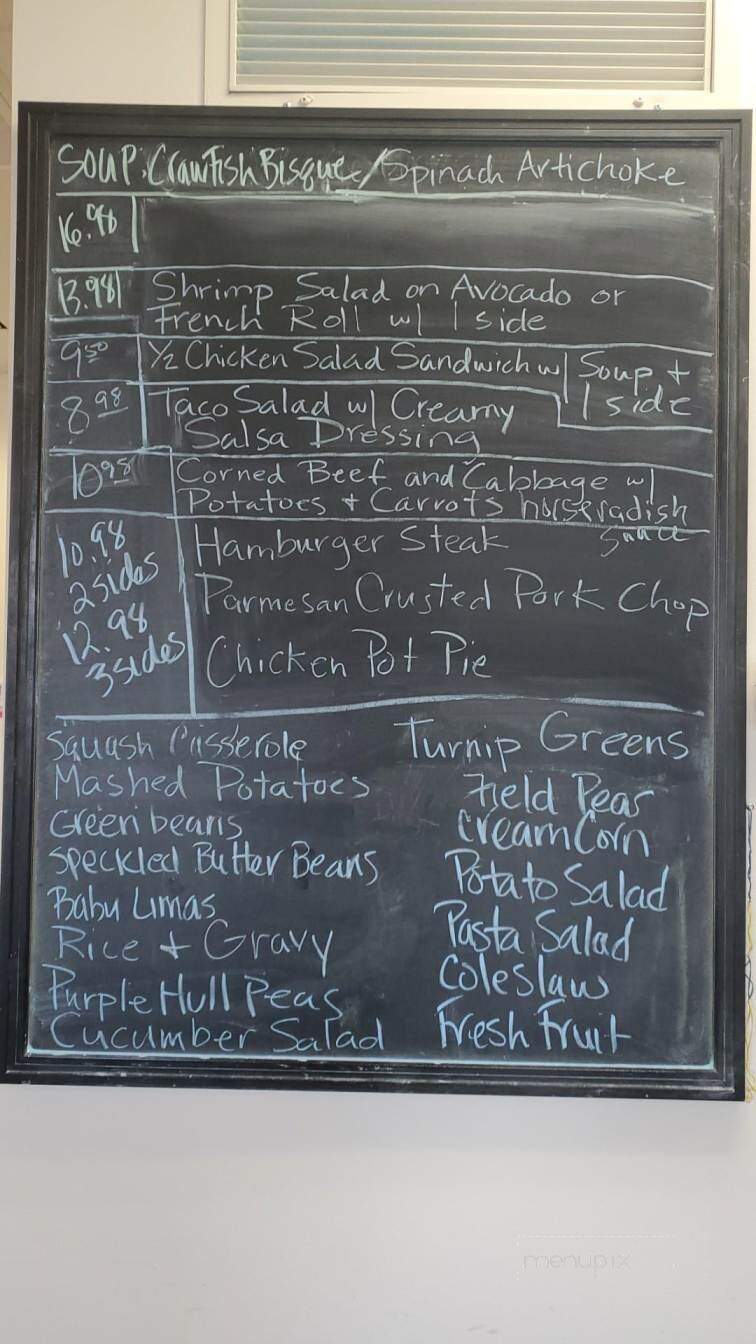 SOUP: Crawfish Bisque/Spinach Artichoke
16.98
13.98 Shrimp Salad on Avocado or
French Roll w/ 1 side
9.50 ½ Chicken Salad Sandwich w/ Soup +
1 side
8.98 Taco Salad w/ Creamy
Salsa Dressing
10.98 Corned Beef and Cabbage w/
Potatoes + Carrots horseradish
sauce
10.98 Hamburger Steak
2 sides Parmesan Crusted Pork Chop
12.98
3 sides Chicken Pot Pie
Squash Casserole Turnip Greens
Mashed Potatoes Field Peas
Green beans Cream Corn
Speckled Butter Beans Potato Salad
Baby Limas Pasta Salad
Rice + Gravy Coleslaw
Purple Hull Peas Fresh Fruit
Cucumber Salad
menupix